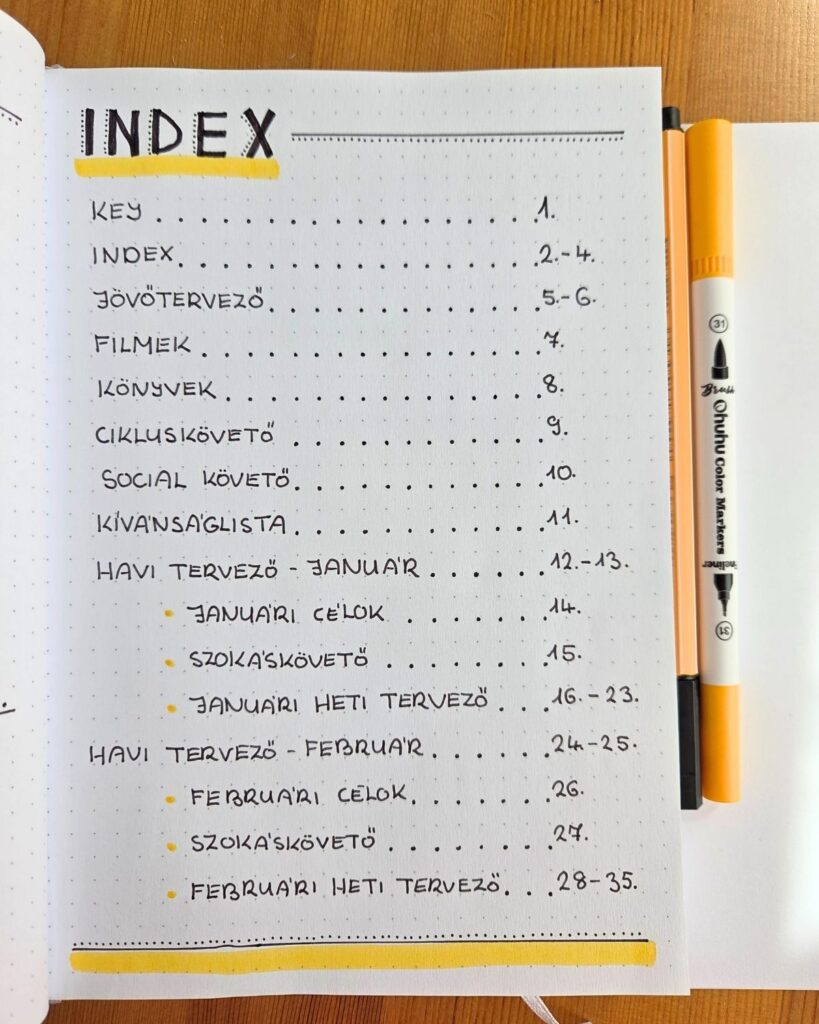 INDEX
KEY . . . . . . . . . . . . . . . . . 1.
INDEX. . . . . . . . . . . . . . . . 2.-4.
JÖVŐTERVEZŐ. . . . . . . . . . . . 5.-6.
FILMEK . . . . . . . . . . . . . . . 7.
KÖNYVEK . . . . . . . . . . . . . . 8.
CIKLUSKÖVETŐ . . . . . . . . . . . 9.
SOCIAL KÖVETŐ. . . . . . . . . . . 10.
KÍVÁNSÁGLISTA . . . . . . . . . . . 11.
HAVI TERVEZŐ - JANUÁR . . . . . . 12.-13.
• JANUÁRI CÉLOK . . . . . . . 14.
• SZOKÁSKÖVETŐ . . . . . . . . 15.
• JANUÁRI HETI TERVEZŐ . . . 16.-23.
HAVI TERVEZŐ - FEBRUÁR . . . . . . 24.-25.
• FEBRUÁRI CÉLOK. . . . . . . 26.
• SZOKÁSKÖVETŐ . . . . . . . . 27.
• FEBRUÁRI HETI TERVEZŐ. . . 28-35.
31
Brush
Ohuhu Color Markers
fineliner
31